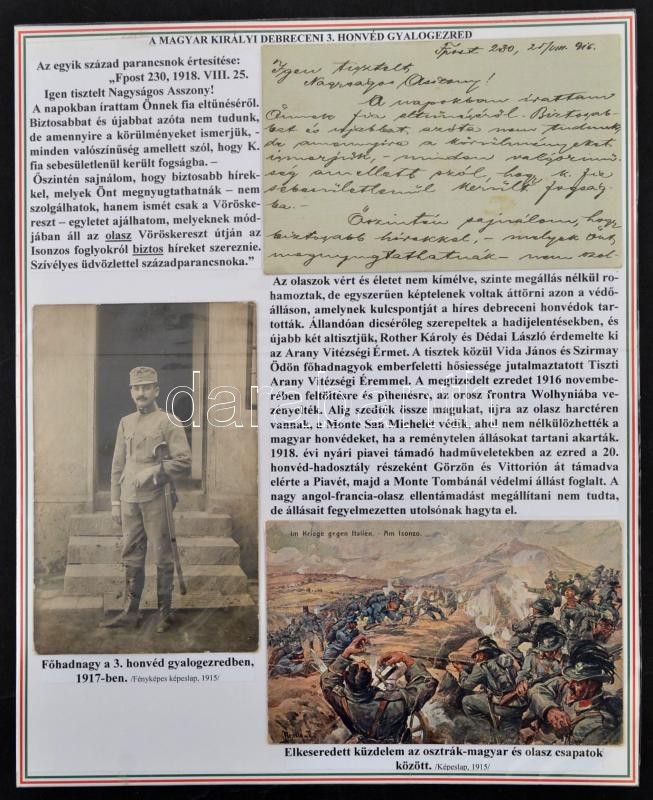 A MAGYAR KIRÁLYI DEBRECENI 3. HONVÉD GYALOGEZRED
Az egyik század parancsnok értesítése:
„Fpost 230, 1918. VIII. 25.
Igen tisztelt Nagyságos Asszony!
A napokban írattam Önnek fia eltünéséről.
Biztosabbat és újabbat azóta nem tudunk,
de amennyire a körülményeket ismerjük, -
minden valószínüség amellett szól, hogy K.
fia sebesületlenül került fogságba. –
Őszintén sajnálom, hogy biztosabb hírek-
kel, melyek Önt megnyugtathatnák – nem
szolgálhatok, hanem ismét csak a Vöröske-
reszt – egyletet ajálhatom, melyeknek mód-
jában áll az olasz Vöröskereszt útján az
Isonzos foglyokról biztos híreket szereznie.
Szívélyes üdvözlettel századparancsnoka.”
Fpost 230, 25/VIII. 916.
Igen tisztelt
Nagyságos Asszony!
A napokban irattam
Önnek fia eltünéséről. Biztosab-
bat és ujabbat azóta nem tudunk,
de amennyire a körülményeket
ismerjük, - minden valószinü-
ség amellett szól, hogy K. fia
sebesületlenül került fogság-
ba. –
Öszintén sajnálom, hogy
biztosabb hirekkel, – melyek Önt
megnyugtathatnák – nem szol-
Az olaszok vért és életet nem kímélve, szinte megállás nélkül ro-
hamoztak, de egyszerűen képtelenek voltak áttörni azon a védő-
álláson, amelynek kulcspontját a híres debreceni honvédok tar-
tották. Állandóan dicsérőleg szerepeltek a hadijelentésekben, és
újabb két altisztjük, Rother Károly és Dédai László érdemelte ki
az Arany Vitézségi Érmet. A tisztek közül Vida János és Szirmay
Ödön főhadnagyok emberfeletti hősiessége jutalmaztatott Tiszti
Arany Vitézségi Éremmel. A megtizedelt ezredet 1916 novembe-
rében feltöltésre és pihenésre, az orosz frontra Wolhyniába ve-
zényelték. Alig szedték össze magukat, újra az olasz harctéren
vannak, a Monte San Michelét védik, ahol nem nélkülözhették a
magyar honvédeket, ha a reménytelen állásokat tartani akarták.
1918. évi nyári piavei támadó hadműveletekben az ezred a 20.
honvéd-hadosztály részeként Görzön és Vittorión át támadva
elérte a Piavét, majd a Monte Tombánál védelmi állást foglalt. A
nagy angol-francia-olasz ellentámadást megállítani nem tudta,
de állásait fegyelmezetten utolsónak hagyta el.
darabanth
Im Kriege gegen Italien. - Am Isonzo.
Főhadnagy a 3. honvéd gyalogezredben,
1917-ben. /Fényképes képeslap, 1915/
Elkeseredett küzdelem az osztrák-magyar és olasz csapatok
között. /Képeslap, 1915/